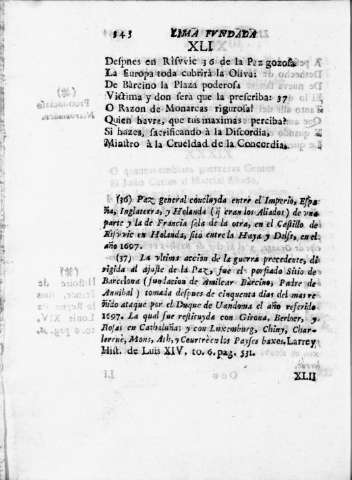 343 LIMA FVNDADA
XLI
Despues en Risvvic 36 de la Paz gozosa
La Europa toda cubrirà la Oliva:
De Bàrcino la Plaza poderosa
Victima y don sera que la prescriba: 37
O Razon de Monarcas rigurosa!
Quien havrè, que tus maximas perciba?
Si hazes, sacrificando à la Discordia,
Ministro à la Crueldad de la Concordia.
(36) Paz general concluyda entre el Imperio, Espa-
ña, Inglaterra, y Holanda (q̃ eran los Aliados) de vna
parte y la de Francia sola de la otra, en el Castillo de
Risvvic en Holanda, sito entre la Haya y Delft, en el
año 1697.
(37) La vltima accion de la guerra precedente, di-
rigida al ajuste de la Paz, fue el porfiado Sitio de
Barcelona (fundacion de Amilcar Bàrcino, Padre de
Annibal) tomada despues de cinquenta dias del mas re-
ñido ataque por el Duque de Uandoma el año referido
1697. La qual fue restituyda con Girona, Berber, y
Rosas en Cathaluña; y con Luxemburg, Chiny, Char-
leroè, Mons, Ath, y Courtrè en los Payses baxos. Larrey
Hist. de Luis XIV. to. 6. pag. 331.
XLII